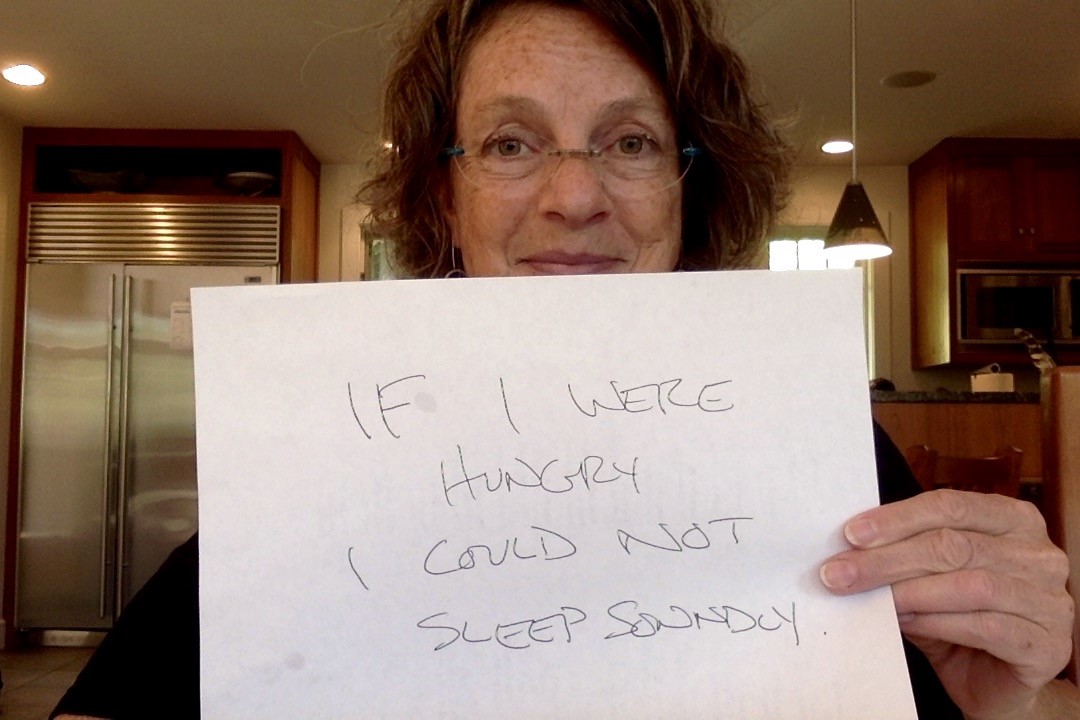 IF I WERE
HUNGRY
I COULD NOT
SLEEP SOUNDLY.